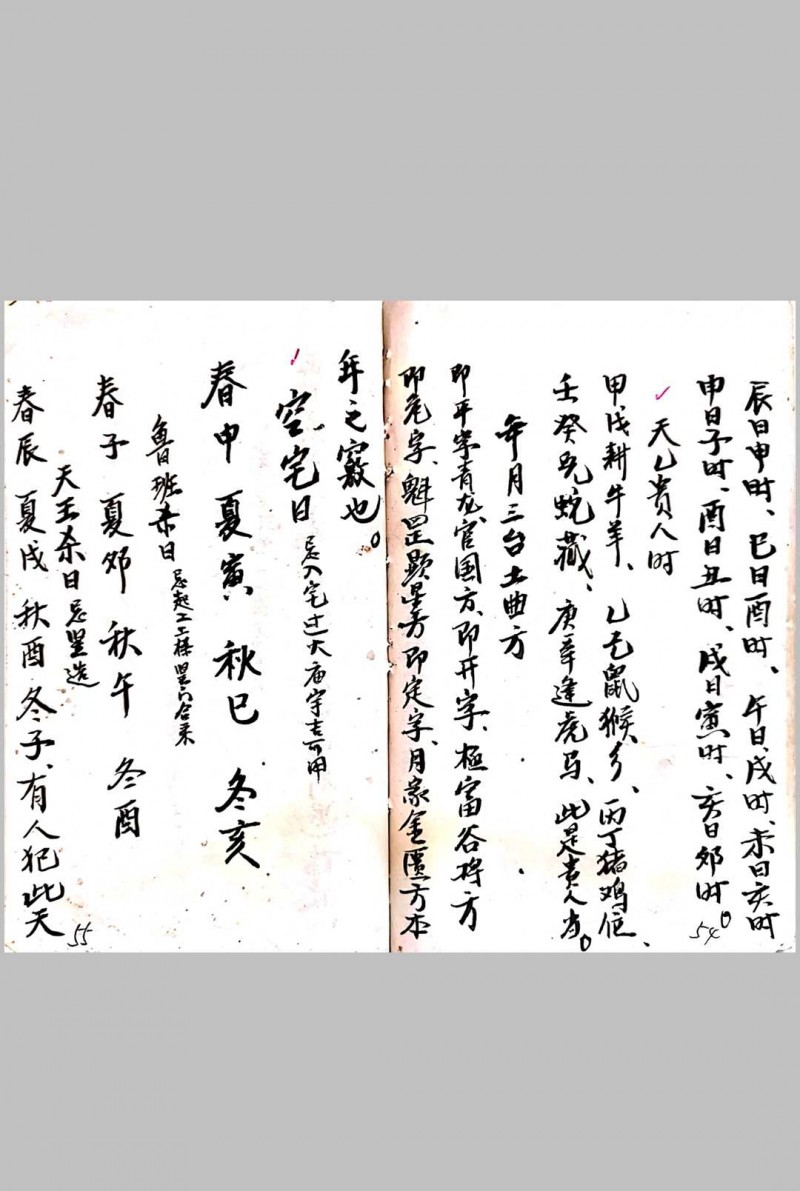 辰日申时、巳日酉时、午日戌时、未日亥时
申日子时、酉日丑时、戌日寅时、亥日卯时。
天乙贵人时
甲戊耕牛羊、乙己鼠猴乡、丙丁猪鸡位、
壬癸兎蛇藏、庚辛逢虎马、此是贵人方。
年月三台土曲方
即平字青龙、官国方、即开字、极富谷将方
即危字、魁罡显星方即定字、月家金匮方本
54
年之窍也。
空宅日 忌入宅过火庙宇吉可用
春申 夏寅 秋巳 冬亥
鲁班杀日 忌起工上樑竖门合寿
春子 夏卯 秋午 冬酉
天王杀日 忌竖造
春辰 夏戌 秋酉 冬子、有人犯此天
55